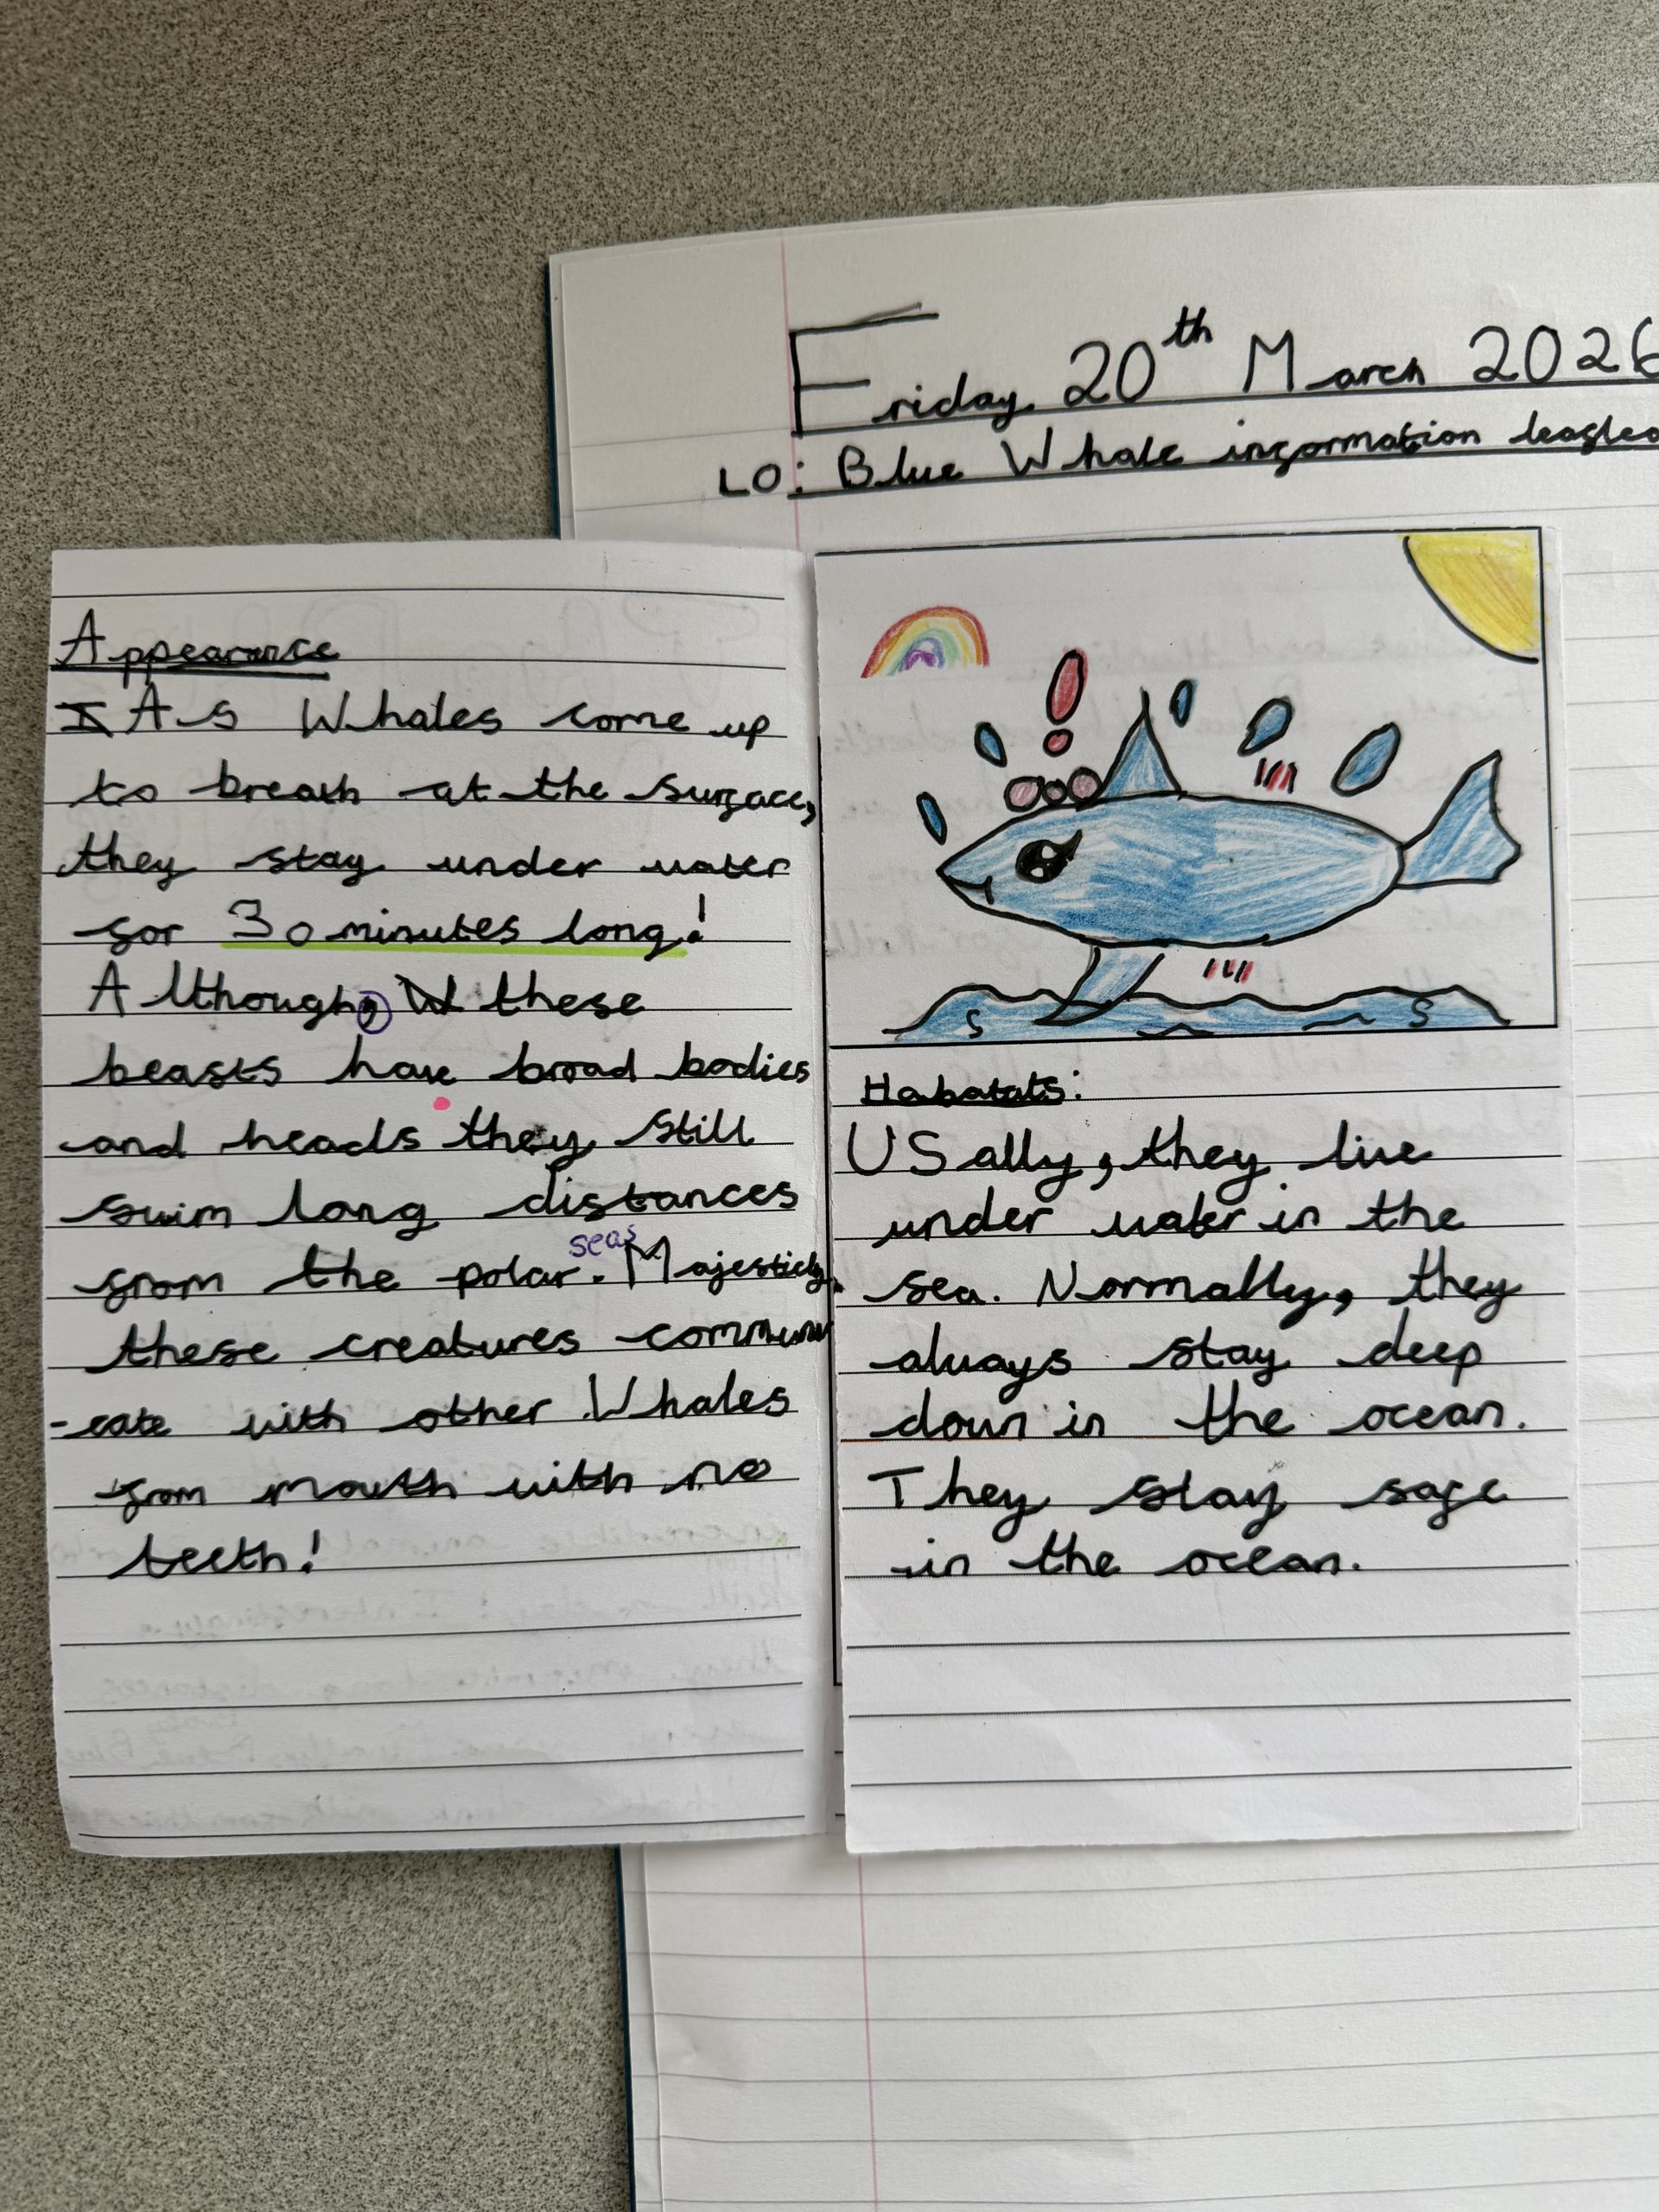 Friday 20th March 2026
LO: Blue Whale information
Appearance
As Whales come up
to breath at the surface,
they stay under water
for 30 minutes long!
Although, these
beasts have broad bodies
and heads they still
swim long distances
from the polar seas. Majesticly,
these creatures commun
-cate with other Whales
from mouth with no
teeth!
Habatats:
USally, they live
under water in the
sea. Normally, they
always stay deep
down in the ocean.
They stay safe
in the ocean.